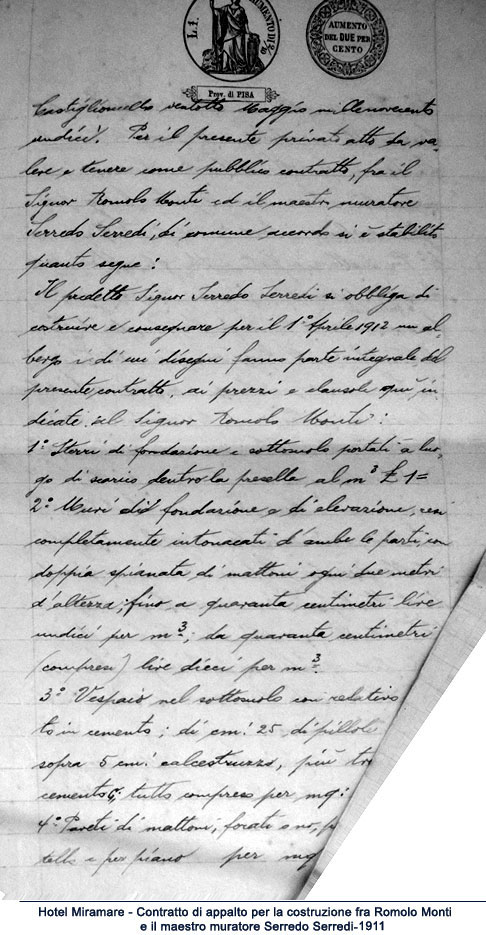 L. 1
AUMENTO DI 2/10
AUMENTO
DEL DUE PER
CENTO
Prov. di PISA
Castiglioncello ventotto Maggio millenovecento
undici. Per il presente privato atto da va-
lere e tenere come pubblico contratto, fra il
Signor Romolo Monti ed il maestro muratore
Serredo Serredi, di comune accordo si è stabilito
quanto segue:
Il predetto Signor Serredo Serredi si obbliga di
costruire e consegnare per il 1° Aprile 1912 un al-
bergo i di cui disegni fanno parte integrale del
presente contratto, ai prezzi e clausole quì in-
dicate dal Signor Romolo Monti:
1° Sterri di fondazione e sottosuolo portati a luo-
go di scarico dentro la presella al m³ £ 1=
2° Muri di fondazione e di elevazione, resi
completamente intonacati d'ambe le parti, con
doppia spianata di mattoni ogni due metri
d'altezza; fino a quaranta centimetri lire
undici per m³; da quaranta centimetri
(compresi) lire dieci per m³.
3° Vespaio nel sottosuolo con relativo
to in cemento; di cm: 25 di pilloli
sopra 5 cm: calcestruzzo, più
cemento; tutto compreso per mq:
4° Pareti di mattoni, forati o no, p
telle e per piano per mq
Hotel Miramare - Contratto di appalto per la costruzione fra Romolo Monti
e il maestro muratore Serredo Serredi-1911